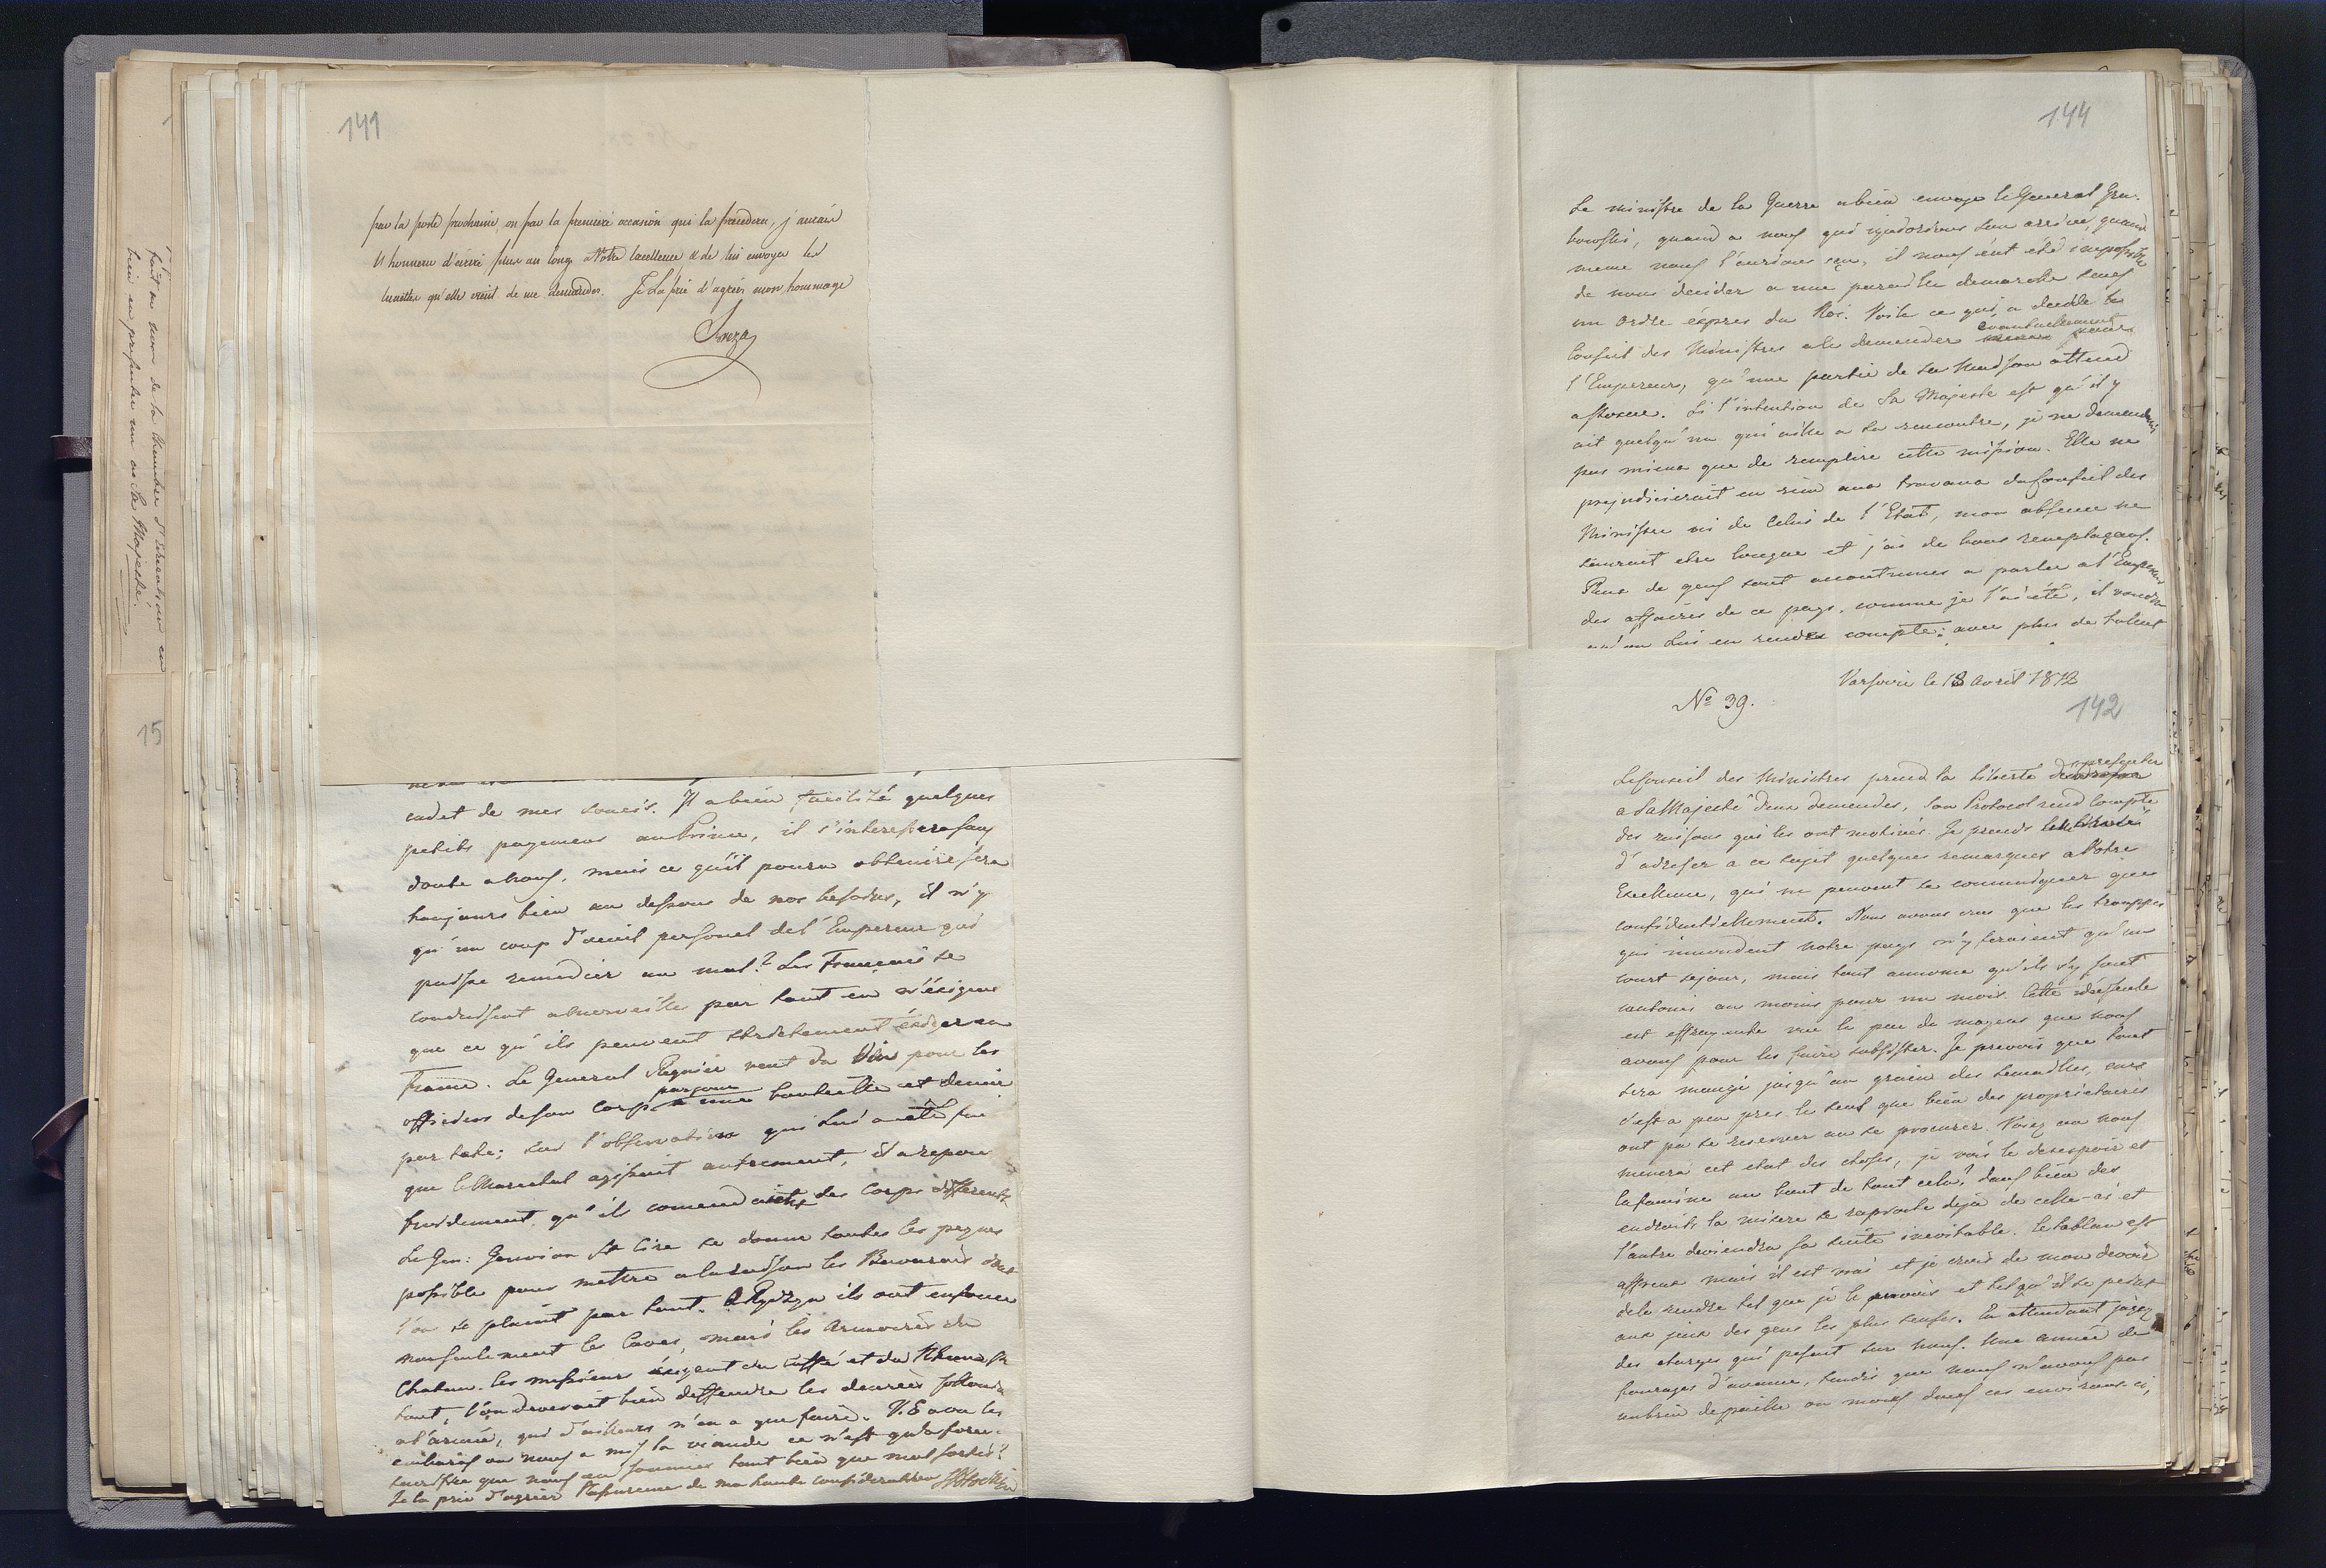 fait au nom de la Chambre d'
bien en presenter un à Sa Majesté.
15
141
par la poste prochaine, ou par la première occasion qui la precedera, j'aurai
l'honneur d'écrire plus au long à Votre Excellence & de lui envoyer les
qu'elle vient de me demander. Je La prie d'agréer mon hommage
cadet de mes soucis. Il a bien facilité quelques
petits payemens au Prince, il s'interessera sans
doute a nous, mais ce qu'il poura obtenire sera
toujours bien au dessous de nos besoins, il n'y
qu'un coup d'oeuil personel de l'Empereur qui
puisse remedier au mal? Les Français se
conduisent a merveille par tout en n'exigeant
que ce qu'ils peuvent strictement exiger en
France. Le General Regnier veut du Vin pour les
officiers de son Corps par jour une bouteille et demie
par tete; sur l'observation qui lui a été fai
que le Marechal agissait autrement, il a repon
froidement, qu'ils comendaient des Corps differents
Le Gen: Gouvion St Cire se donne toutes les peynes
possible pour mettre a la raison les Bavarois dont
l'on se plaint par tout. A ils ont enfoncer
nonseulement les Caves, mais les Armoires du
Chateau. Ces messieurs éxigent du caffé et du
tout, l'on devroit bien deffendre les denrées
a l'armée, qui d'ailleurs n'en a que faire. V. E a vu les
embaras ou nous a mis la viande ce n'est qu'a force
sacrifice que nous en sommes tant bien que mal sortis?
Je la prie d'agréer l'assurence de ma haute consideration
144
Le ministre de la Guerre a bien envoyé le General Gra-
bowski, quand a nous qui ignorions son arrivée, quand
meme nous l'eurions sçu, il nous eut été impossible
de nous decider a une pareille demarche sans
un ordre éxpres du Roi. Voila ce qui a decidé le
Conseil des Ministres a le demender eventuellement
l'Empereur, qu'une partie de sa Maison attend
a Posen. Si l'intention de Sa Majesté est qu'il y
ait quelqu'un qui aille a sa rencontre, je ne demenderois
pas mieux que de remplire cette mission. Elle ne
prejudicierait en rien aux travaux du Conseil des
Ministre ni de Celui de l'Etat, mon absence ne
saurait etre longue et j'ai de bons remplaçans.
Peux de gens sont accoutumés a parler a l'Empereur
des affaires de ce pays, comme je l'ai été, il
lui en rendre compte; avec plus de talent
Varsovie le 18 Avril 1812
No 39.
142
Le Conseil des Ministres prend la liberté de presenter
a Sa Majesté deux demendes, son Protocol rend compte
des raisons qui les ont motivés. Je prends la liberté
d'adresser a ce sujet quelques remarques a Votre
Excellence, qui ne peuvent se comuniquer que
confidentiellement. Nous avons cru que les trouppes
qui innondent notre pays n'y feraient qu'un
court sejour, mais tout annonce qu'ils s'y sont
cantonés au moins pour un mois. Cette
est effrayante vue le peu de moyens que nous
avons pour les faire subsister. Je prevois que tout
sera mangé jusqu'au grain des semailles, car
c'est a peu près le seul que bien des proprietaires
ont pu se reserver ou se procurer. Voyez ou nous
menera cet etat des choses, je vois le desespoir et
la famine au bout de tout cela? dans bien des
endroits la misere se raproche deja de celle-ci et
l'autre deviendra sa suite inevitable. Le tableau est
affreux mais il est vrai et je crois de mon devoir
de le rendre tel que je le prevois et tel qu'il se peint
aux jeux des gens les plus sensés. En attendant jugez
des charges qui pesent sur nous. Une année de
fourages d'avance, tandis que nous n'avons pas
un brin de paille ou moins dans ces environs ci,